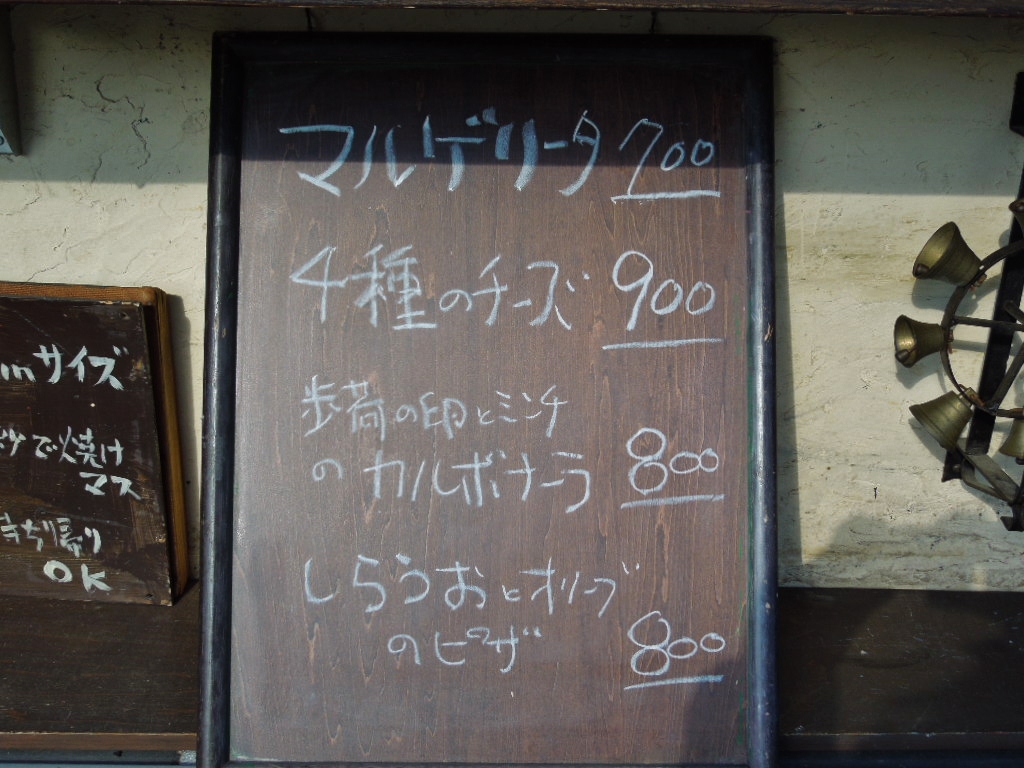 マルデリータ 700
4種のチーズ 900
歩荷の卵とミンチ
のカルボナーラ 800
しらうおとオリーブ
のピザ 800
mサイズ
で焼け
マス
持ち帰り
OK